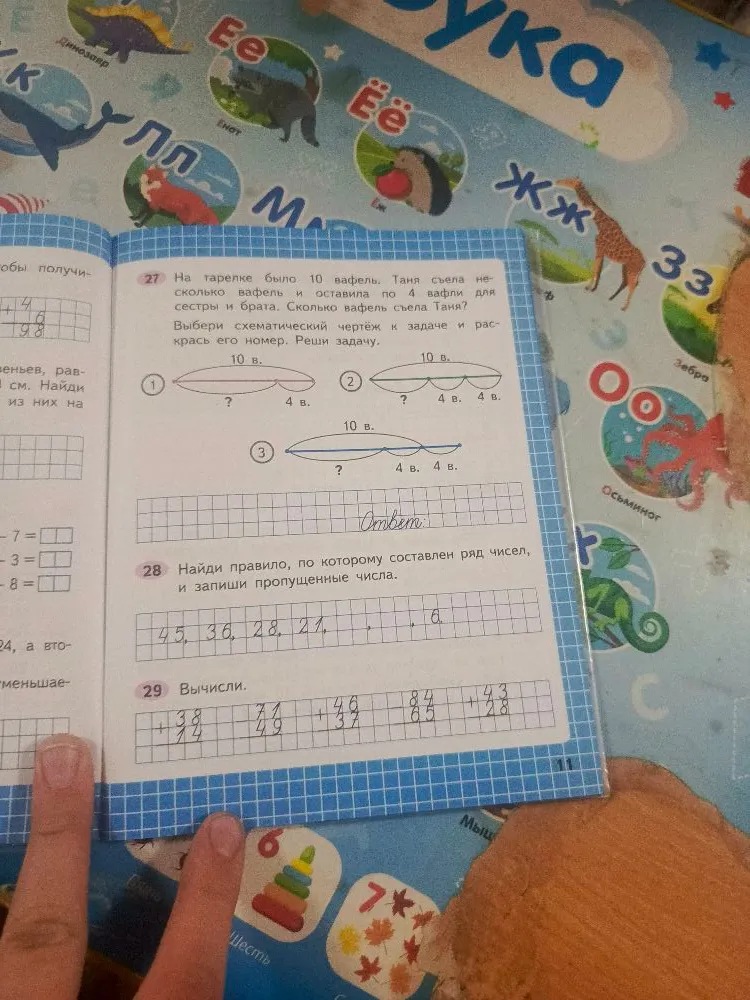 ука
Динозавр
Ее
Енот
Ёё
Ёж
к
Лл
М
Жж
Зз
Зебра
Оо
Осьминог
обы получи-
+ 4
6
98
веньев, рав-
см. Найди
из них на
– 7 =
– 3 =
– 8 =
24, а вто-
уменьшае-
27 На тарелке было 10 вафель. Таня съела не-
сколько вафель и оставила по 4 вафли для
сестры и брата. Сколько вафель съела Таня?
Выбери схематический чертёж к задаче и рас-
крась его номер. Реши задачу.
10 в. 10 в.
1 2
? 4 в. ? 4 в. 4 в.
10 в.
3
? 4 в. 4 в.
Ответ:
28 Найди правило, по которому составлен ряд чисел,
и запиши пропущенные числа.
45, 36, 28, 21, , , 6.
29 Вычисли.
+ 38 – 71 + 46 – 84 + 43
14 49 37 65 28
11
Мыш
6
Шесть
7